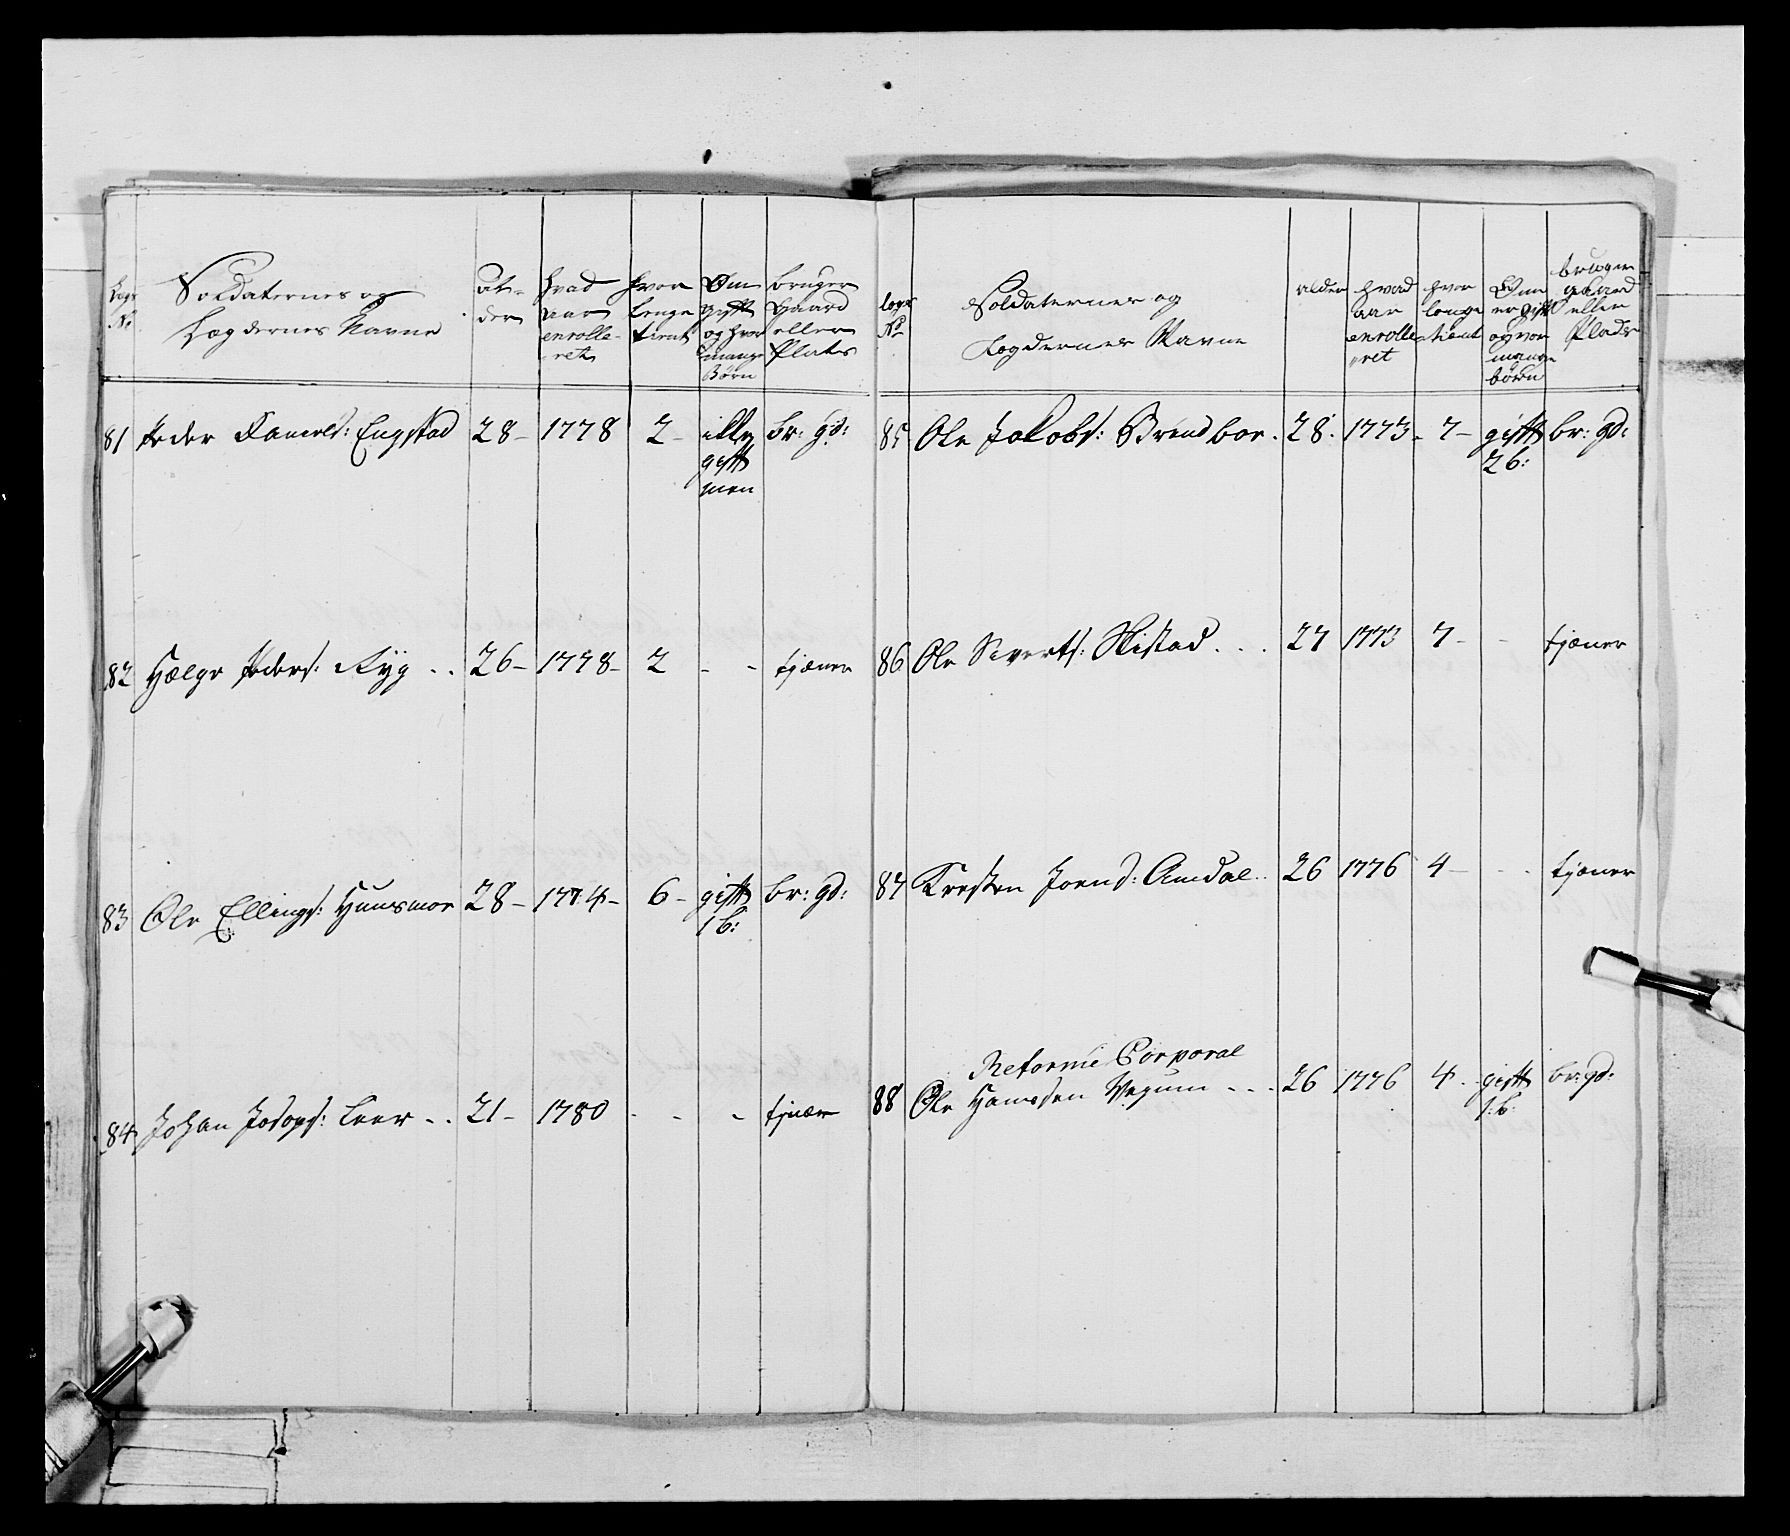 Lægs
No
Soldaternes og
Lægdernes Navne
Al-
der
hvad
aar
enrolle-
ret
hvor
lenge
tient
Om
gift
og hvor
mange
Børn
bruger
Gaard
eller
Plats
81 Peder Engstad 28 - 1778 2 - gift br: gd:
82 Helge Peders: Ryg . . 26 - 1778 - 2 - - tjener
83 Ole Ellings: Huusmoe 28 - 1774 - 6 - gift br: gd:
1 b:
84 Johan Leer . . 21 - 1780 - - - tjener
lægs
No
Soldaternes og
Lægdernes Navne
alder
hvad
aar
enrolle
ret
hvor
lenge
tient
Om
er gift
og hvor
mange
børn
bruger
gaard
eller
Plads
85 Ole Jakobs: 28. 1773. 7 - gift br: gd:
2 b:
86 Ole Siverts: . . . 27 1773 7 - - tjener
87 Kresten Joens: Amdal . . 26 1776 4 - - - tjener
Reforme Corporal
88 Ole Hansen Vegum - - - 26 1776 4 - gift br: gd:
1: b: